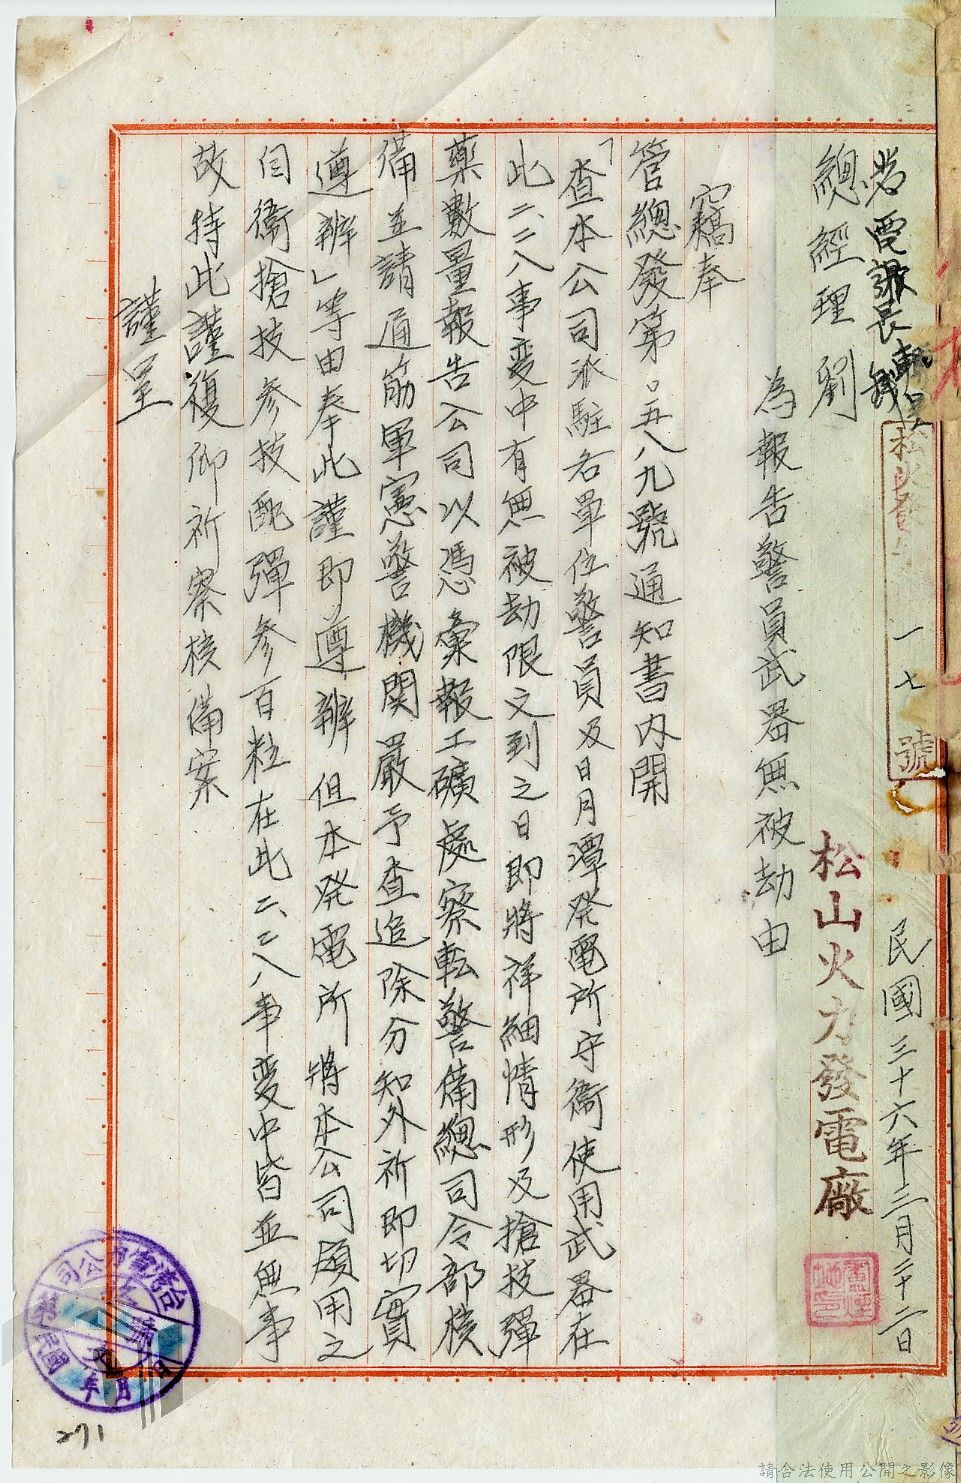 松火發 一七號
民國三十六年三月二十二日
松山火力發電廠
總經理劉
為報告警員武器無被劫由
竊奉
管總發第〇五八九號通知書內開
「查本公司派駐各單位警員及日月潭発電所守衛使用武器在
此二、二八事変中有無被劫限文到之日即將祥細情形及搶枝彈
藥數量報告公司以憑彙報工礦處察転警備總司令部核
備並請通筋軍憲警機関嚴予查追除分知外祈即切實
遵辦」等由奉此謹即遵辦但本発電所將本公司頒用之
自衛搶技参技配彈参百粒在此二、二八事变中皆並無事
故特此謹復仰祈察核備案
謹呈
271
請合法使用公開之影像